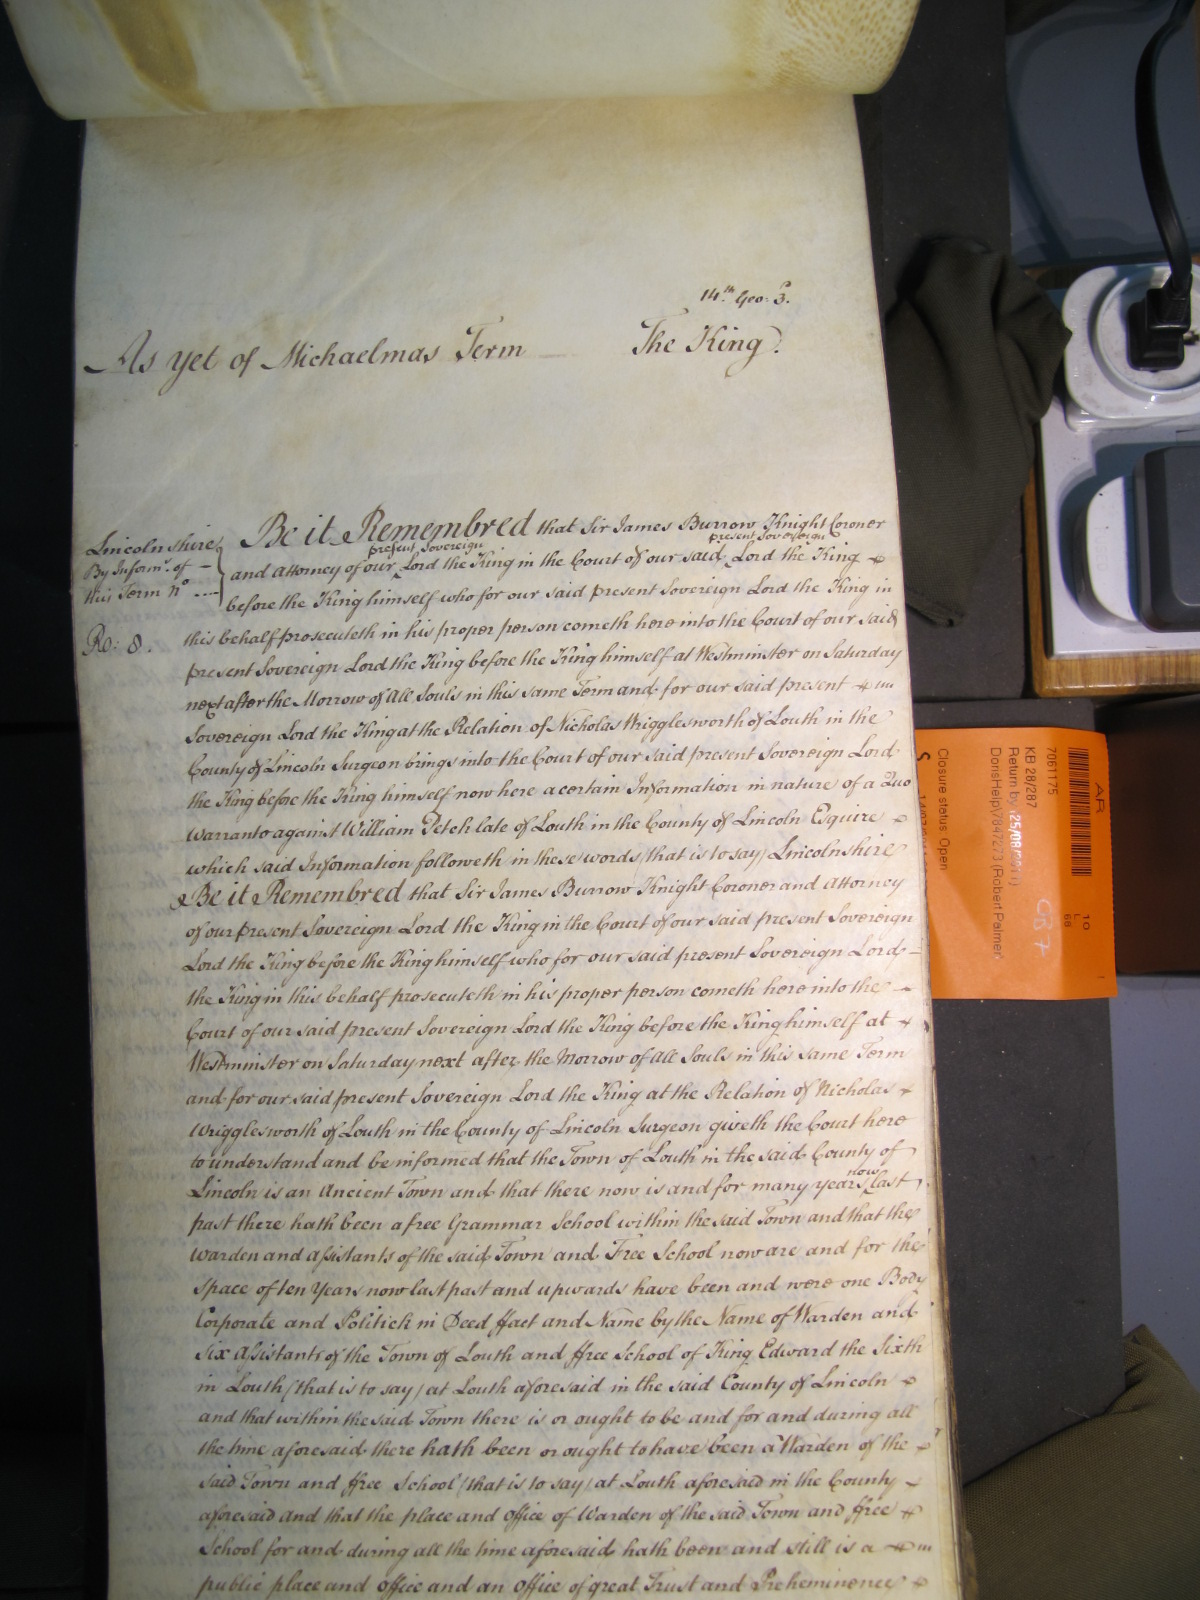 14th Geo: 3.
As yet of Michaelmas Term The King.
Lincolnshire
By Informn. of
this Term No
Ro: 8.
Be it Remembred that Sir James Burrow Knight Coroner
present Sovereign present Sovereign
and Attorney of our Lord the King in the Court of our said Lord the King
before the King himself who for our said present Sovereign Lord the King in
this behalf prosecuteth in his proper person cometh here into the Court of our said
present Sovereign Lord the King before the King himself at Westminster on Saturday
next after the Morrow of All Souls in this same Term and for our said present
Sovereign Lord the King at the Relation of Nicholas Wrigglesworth of Louth in the
County of Lincoln Surgeon brings into the Court of our said present Sovereign Lord
the King before the King himself now here a certain Information in nature of a Quo
Warranto against William Peteh late of Louth in the County of Lincoln Esquire
which said Information followeth in these words (that is to say) Lincolnshire
Be it Remembred that Sir James Burrow Knight Coroner and Attorney
of our present Sovereign Lord the King in the Court of our said present Sovereign
Lord the King before the King himself who for our said present Sovereign Lord
the King in this behalf prosecuteth in his proper person cometh here into the
Court of our said present Sovereign Lord the King before the King himself at
Westminster on Saturday next after the Morrow of All Souls in this same Term
and for our said present Sovereign Lord the King at the Relation of Nicholas
Wrigglesworth of Louth in the County of Lincoln Surgeon giveth the Court here
to understand and be informed that the Town of Louth in the said County of
Lincoln is an Ancient Town and that there now is and for many years now last
past there hath been a free Grammar School within the said Town and that the
Warden and Assistants of the said Town and Free School now are and for the
Space of ten Years now last past and upwards have been and were one Body
Corporate and Politick in Deed ffact and Name by the Name of Warden and
Six Assistants of the Town of Louth and ffree School of King Edward the Sixth
in Louth (that is to say) at Louth aforesaid in the said County of Lincoln
and that within the said Town there is or ought to be and for and during all
the time aforesaid there hath been or ought to have been a Warden of the
said Town and ffree School (that is to say) at Louth aforesaid in the County
aforesaid and that the place and office of Warden of the said Town and ffree
School for and during all the time aforesaid hath been and still is a
public place and office and an office of great Trust and Preheminence
AR
7061175
KB 28/287
Return by (25/08/2011)
DorisHelp\7847273 (Robert Palmer)
Closure status: Open
10
L
68